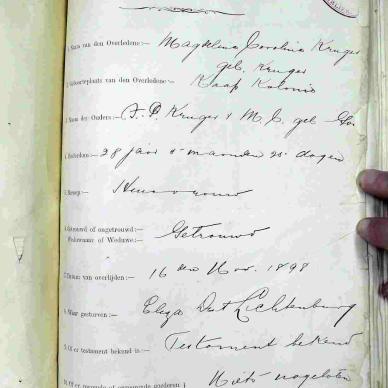 1. Naam van den Overledene:— Magdelina Carolina Kruger
geb. Kruger
2. Geboorteplaats van den Overledene:— Kaap Kolonie
3. Naam der Ouders:— P. Kruger & M. C. geb
4. Ouderdom:— 28 jaar 5 maanden 25 dagen
5. Beroep:— Huisvrouw
6. Getrouwd of ongetrouwd:— Getrouwd
Weduwnaar of Weduwe:—
7. Datum van overlijden:— 16 Nov. 1898
8. Waar gestorven:— Dist Lichtenburg
9. Of er testament bekend is:— Testament bekend
10. Of er roerende of onroerende goederen Niets nagelaten